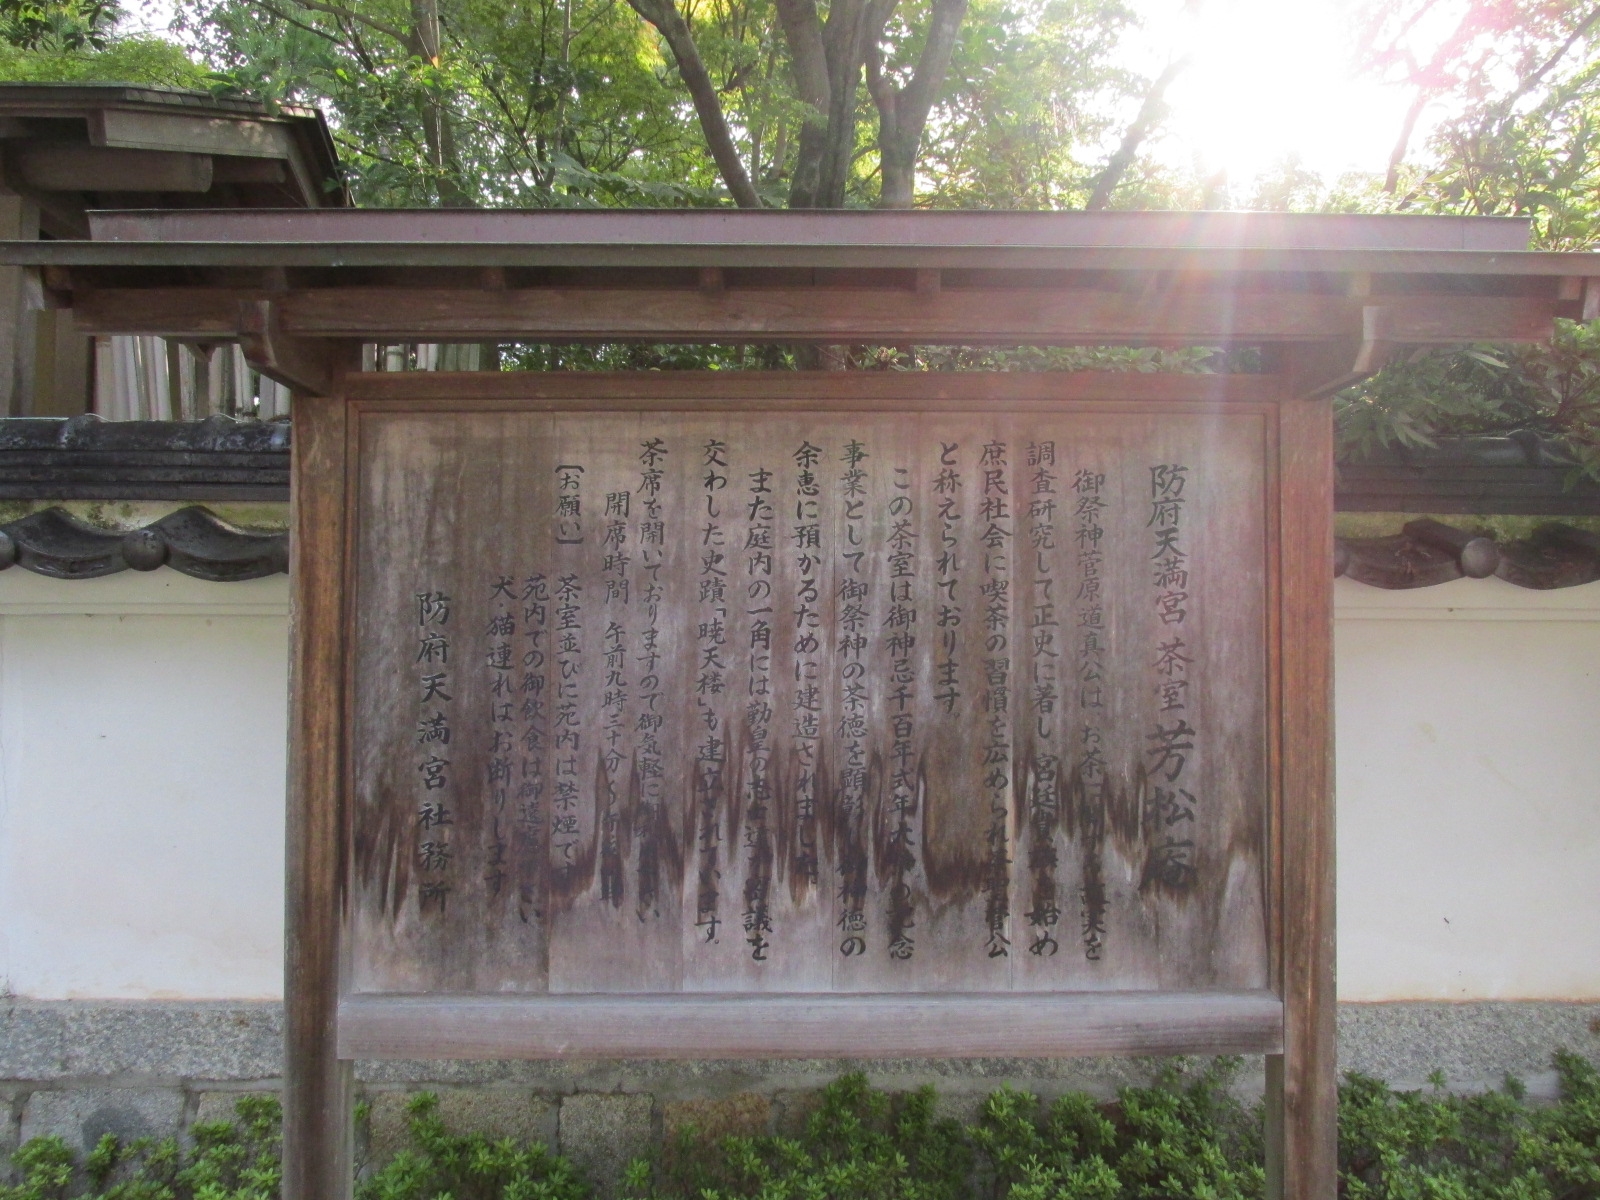 防府天満宮 茶室 芳松庵
御祭神菅原道真公は、お茶に を
調査研究して正史に著し、宮廷 始め
庶民社会に喫茶の習慣を広められ 菅公
と称えられております。
この茶室は御神忌千百年式年大 の記念
事業として御祭神の茶徳を顕彰し 御神徳の
余恵に預かるために建造されました。
また庭内の一角には勤皇の志士達 議を
交わした史蹟「暁天楼」も建立されています。
茶席を開いておりますので御気軽に い
開席時間 午前九時三十分〜午後
【お願い】 茶室並びに苑内は禁煙です
苑内での御飲食は御遠慮 さい
犬・猫連れはお断りします
防府天満宮社務所